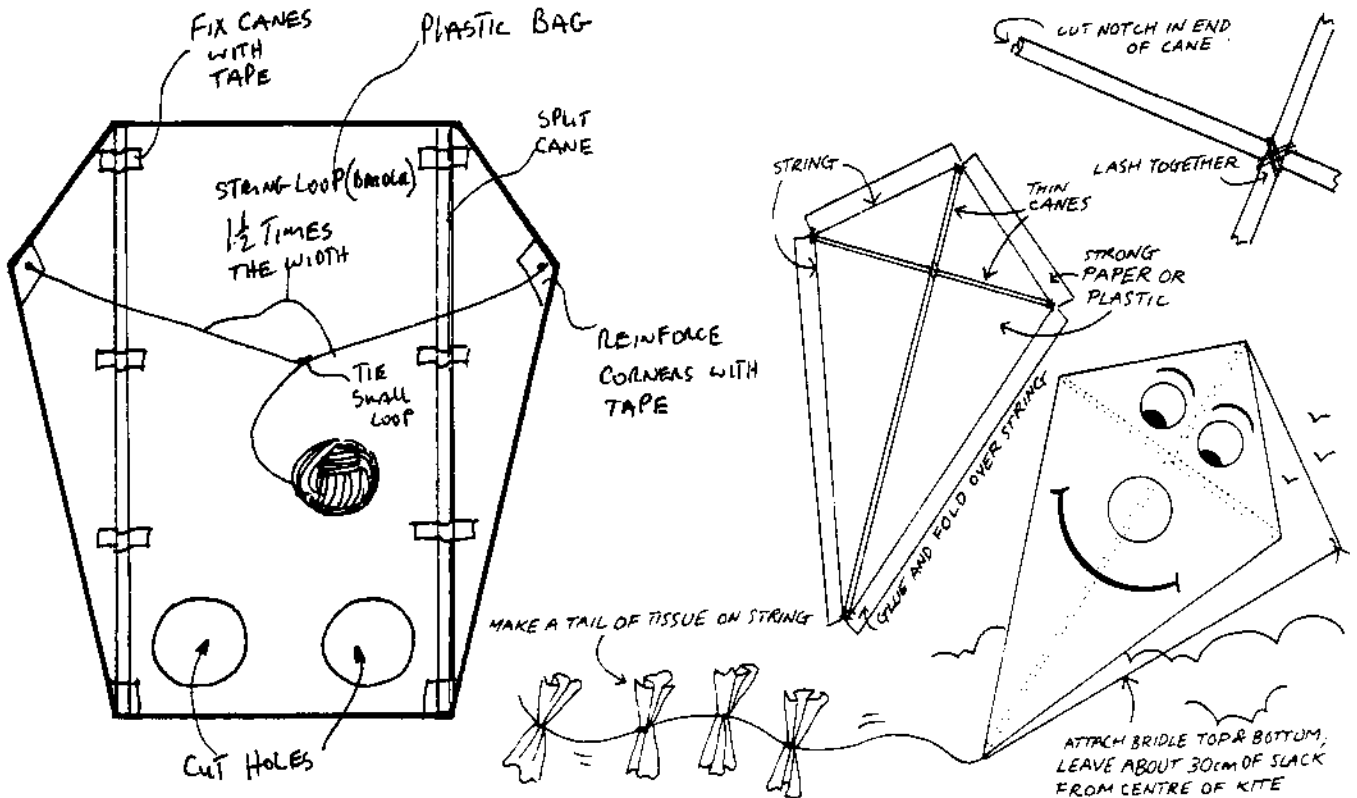 FIX CANES
WITH
TAPE
PLASTIC BAG
SPLIT
CANE
STRING LOOP (BRIDLE)
1½ TIMES
THE WIDTH
TIE
SMALL
LOOP
REINFORCE
CORNERS WITH
TAPE
CUT HOLES
CUT NOTCH IN END
OF CANE
LASH TOGETHER
STRING
THIN
CANES
STRONG
PAPER OR
PLASTIC
GLUE AND FOLD OVER STRING
MAKE A TAIL OF TISSUE ON STRING
ATTACH BRIDLE TOP & BOTTOM,
LEAVE ABOUT 30cm OF SLACK
FROM CENTRE OF KITE